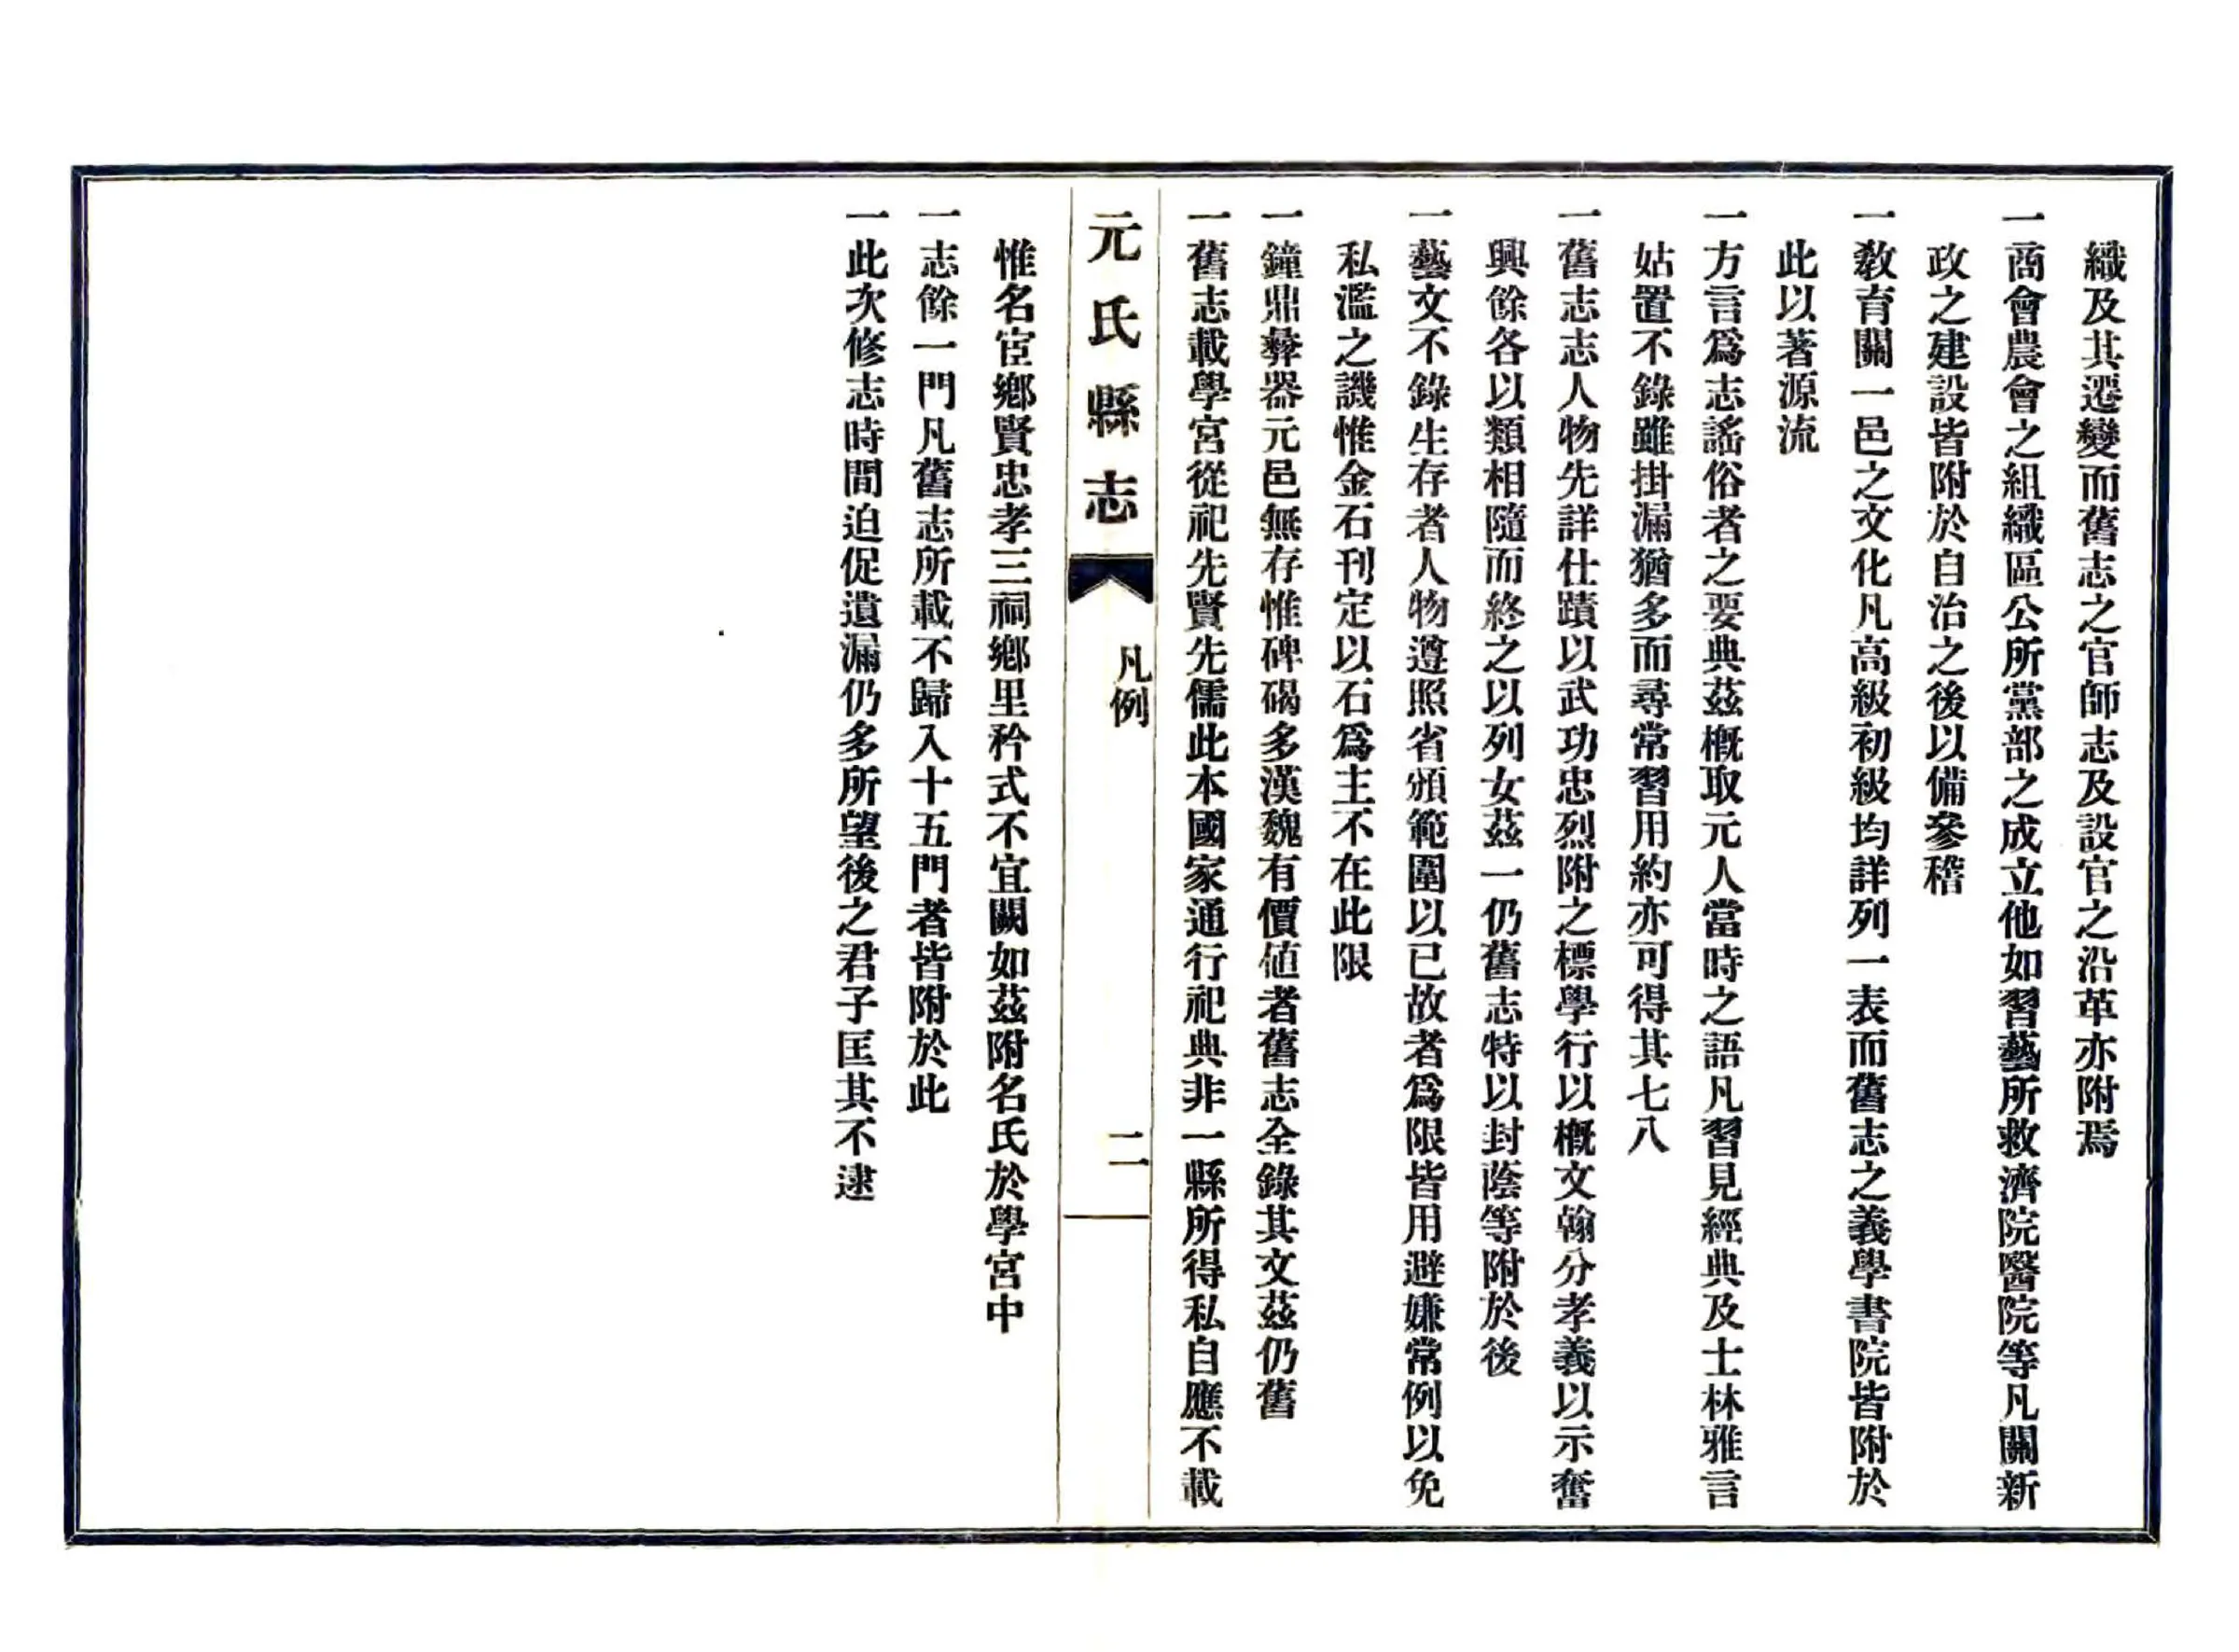 織及其遷變而舊志之官師志及設官之沿革亦附焉
一商會農會之組織區公所黨部之成立他如習藝所救濟院醫院等凡關新
政之建設皆附於自治之後以備參稽
一敎育關一邑之文化凡高級初級均詳列一表而舊志之義學書院皆附於
此以著源流
一方言爲志謠俗者之要典茲槪取元人當時之語凡習見經典及士林雅言
姑置不錄雖掛漏猶多而尋常習用約亦可得其七八
一舊志志人物先詳仕蹟以武功忠烈附之標學行以槪文翰分孝義以示奮
興餘各以類相隨而終之以列女茲一仍舊志特以封蔭等附於後
一藝文不錄生存者人物遵照省頒範圍以已故者爲限皆用避嫌常例以免
私濫之譏惟金石刊定以石爲主不在此限
一鐘鼎彝器元邑無存惟碑碣多漢魏有價値者舊志全錄其文茲仍舊
一舊志載學宮從祀先賢先儒此本國家通行祀典非一縣所得私自應不載
元氏縣志
凡例
二
惟名宦鄉賢忠孝三祠鄉里矜式不宜闕如茲附名氏於學宮中
一志餘一門凡舊志所載不歸入十五門者皆附於此
一此次修志時間迫促遺漏仍多所望後之君子匡其不逮